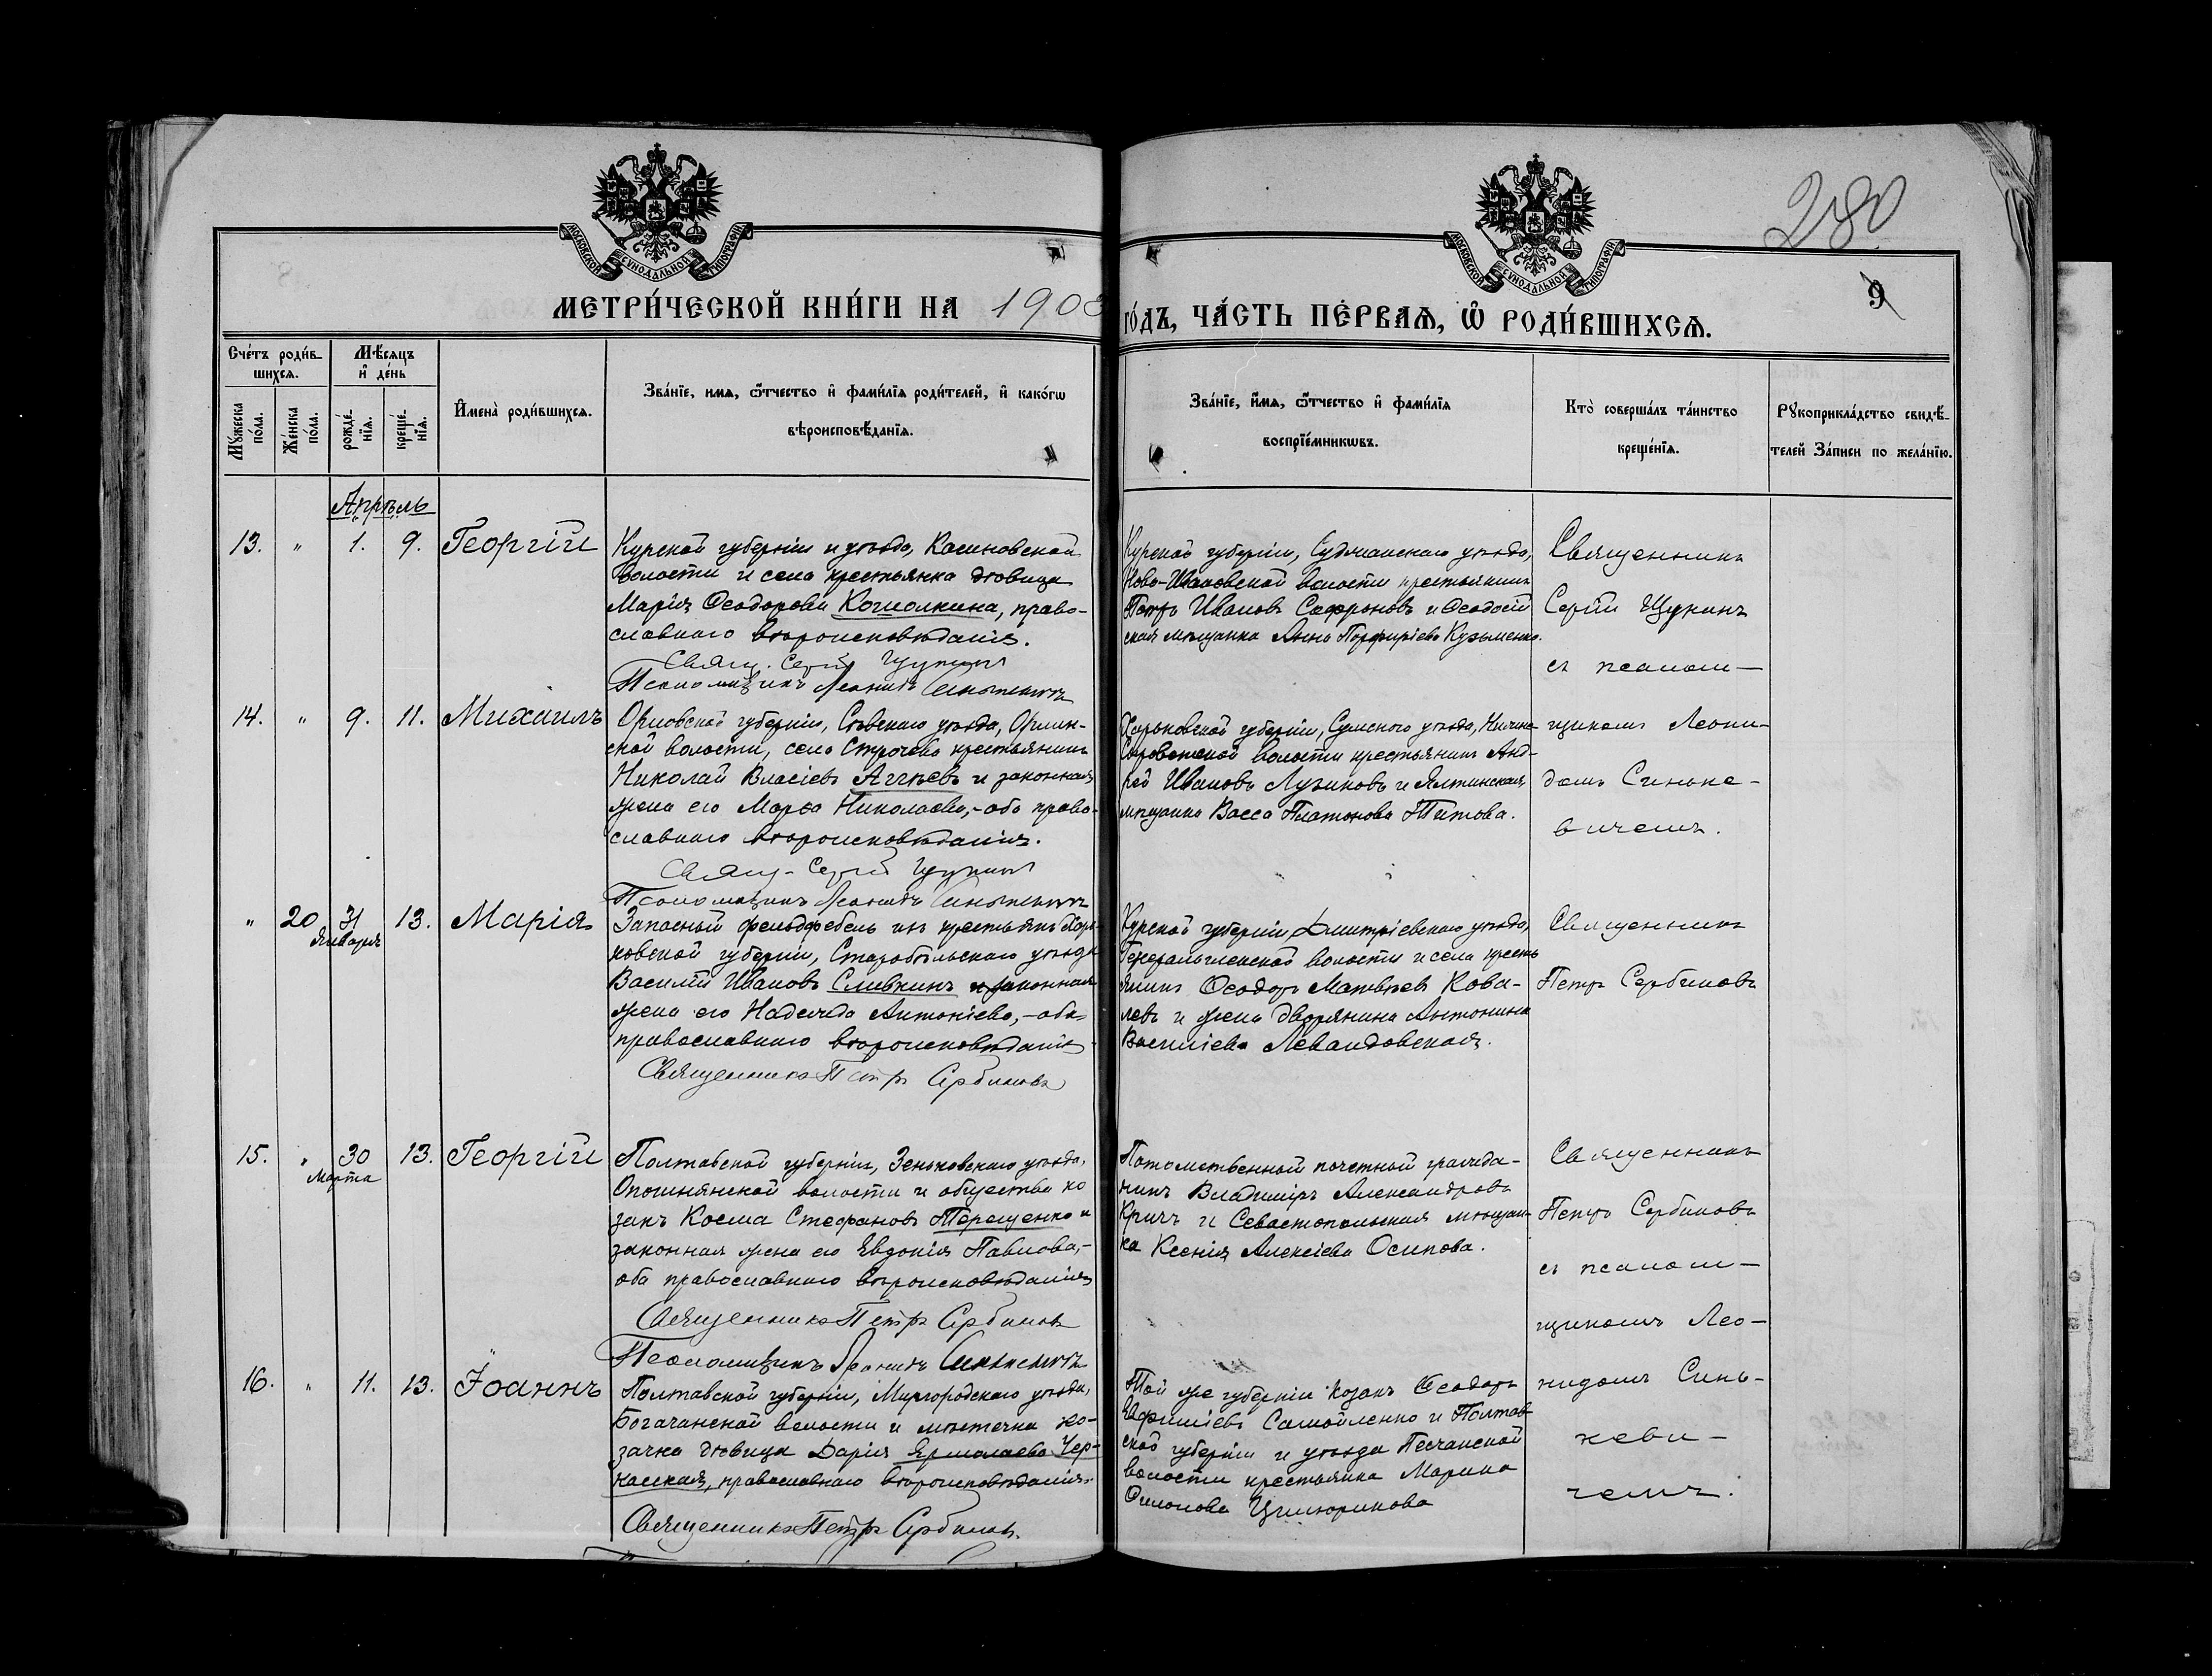 280
МОСКОВСКОЙ СѴНОДАЛЬНОЙ ТИПОГРАФІИ
МОСКОВСКОЙ СѴНОДАЛЬНОЙ ТИПОГРАФІИ
9
МЕТРИ́ЧЕСКОЙ КНИ́ГИ НА 1903
ГО́ДЪ, ЧА́СТЬ ПЕ́РВАЯ, Ѡ РОДИ́ВШИХСЯ.
Сче́тъ роди́в-
шихся.
Му́жеска по́ла.
Же́нска по́ла.
Мѣ́сяцъ
и де́нь
рожде́-
нїя.
креще́-
нїя.
Имена̀ роди́вшихся.
Зва́нїе, имя, ѻ҆́тчество и фами́лїя роди́телей, и како́гѡ
вѣроисповѣ́данїя.
Зва́нїе, и́мя, ѻ҆́тчество и фами́лїя
воспрїе́мникѡвъ.
Кто̀ соверша́лъ та́инство
креще́нїя.
Рукоприкла́дство свидѣ́-
телей За́писи по жела́нїю.
Апрѣль
13. " 1. 9. Георгій
Курской губерніи и уѣзда, Касиновской
волости и села крестьянка дѣвица
Марія Ѳеодорова Когмолкина, право-
славнаго вѣроисповѣданія.
Свящ. Сергій Щукинъ
Псаломщикъ Леонидъ Синькевичъ
Курской губерніи, Суджанскаго уѣзда,
Ново-Ивановской волости крестьянинъ
Петръ Ивановъ Сафроновъ и Ѳеодосій
ская мѣщанка Анна Порфиріева Кузьменко.
Священникъ
Сергій Щукинъ
съ псалом-
14. " 9. 11. Михаилъ
Орловской губерніи, Сѣвскаго уѣзда, Орлин-
ской волости, села Строчева крестьянинъ
Николай Власіевъ Аггѣевъ и законная
жена его Марѳа Николаева,- оба право-
славнаго вѣроисповѣданія.
Свящ. Сергій Щукинъ
Псаломщикъ Леонидъ Синькевичъ
Харьковской губерніи, Сумскаго уѣзда, Нижне
Сыроватской волости крестьянинъ Анд-
рей Ивановъ Лузиковъ и Ялтинская
мѣщанка Васса Платонова Титова.
щикомъ Леони-
домъ Синьке-
вичемъ.
" 20 31 13. Марія
Января
Запасный фельдфебель изъ крестьянъ Харь
ковской губерніи, Старобѣльскаго уѣзда
Василій Ивановъ Сливкинъ и законная
жена его Надежда Антоніева,- оба
православнаго вѣроисповѣданія.
Священникъ Петръ Сербиновъ
Курской губерніи, Дмитріевскаго уѣзда,
волости и села кресть
янинъ Ѳеодоръ Матвѣевъ Кова-
левъ и жена дворянина Антонина
Василіева Левандовская.
Священникъ
Петръ Сербиновъ
15. " 30 13. Георгій
Марта
Полтавской губерніи, Зеньковскаго уѣзда,
Опошнянской волости и общества ко
закъ Косма Стефановъ Терещенко и
законная жена его Евдокія Павлова,-
оба православнаго вѣроисповѣданія
Священникъ Петръ Сербиновъ
Псаломщикъ Леонидъ Синькевичъ
Потомственный почетный гражда-
нинъ Владиміръ Александровъ
Кричъ и Севастопольская мѣщан-
ка Ксенія Алексіева Осипова.
Священникъ
Петръ Сербиновъ
съ псалом-
щикомъ Лео-
16. " 11. 13. Іоаннъ
Полтавской губерніи, Миргородскаго уѣзда,
Богачанской волости и мѣстечка ко-
зачка дѣвица Дарія Ярмолаева Чер-
касская, православнаго вѣроисповѣданія.
Священникъ Петръ Сербиновъ.
Той же губерніи козакъ Ѳеодоръ
Евфиміевъ Самойленко и Полтав
ской губерніи и уѣзда Песчанской
волости крестьянка Марина
Симонова Цимюрикова
нидомъ Синь-
кеви-
чемъ.